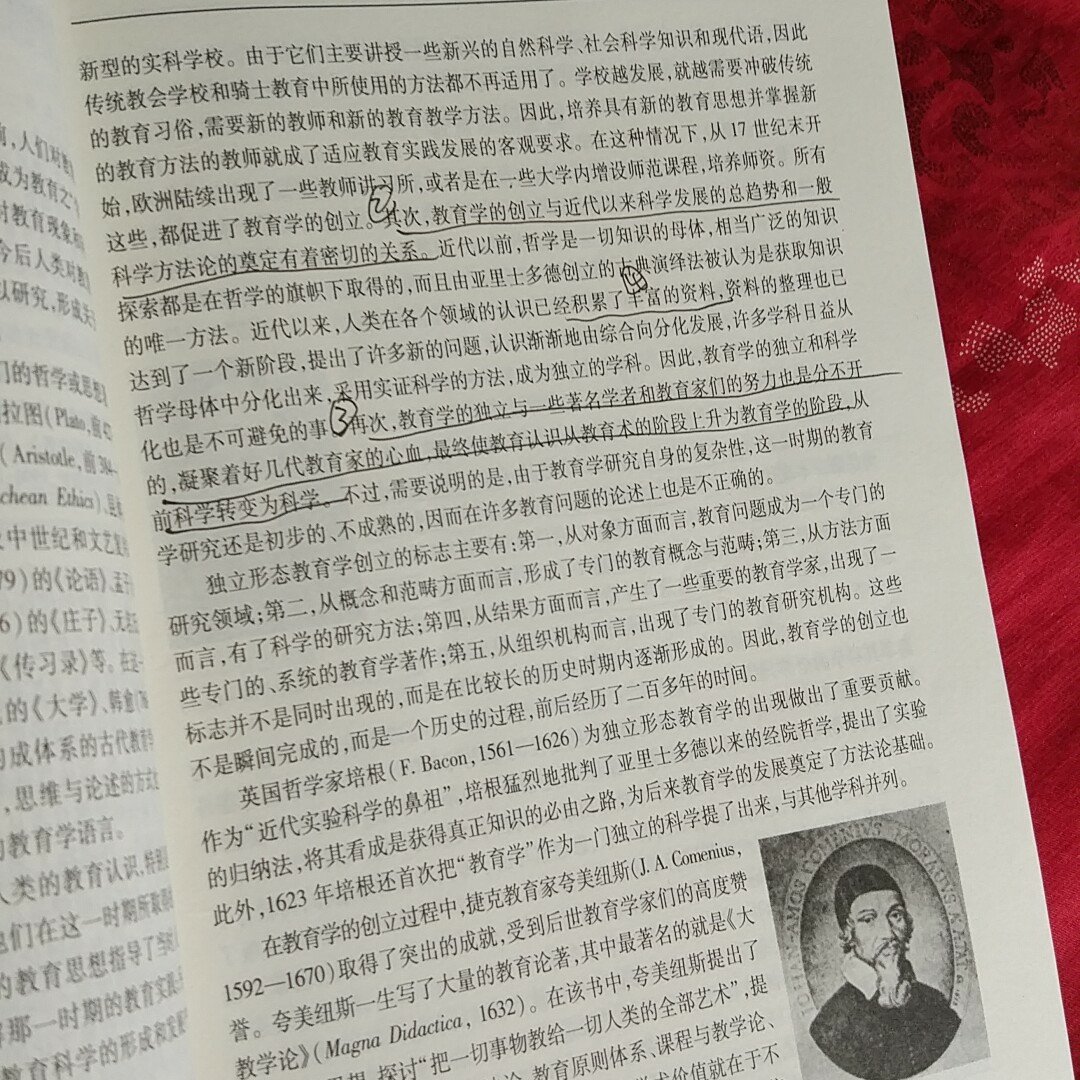 前,人们对教
成为教育之
对教育现象
今后人类对教
以研究,形成
们的哲学或思想
拉图(Plato,前
(Aristotle,前384
chean Ethics)
中世纪和文艺复
79)的《论语》、孟子
6)的《庄子》、无名氏
《传习录》等。在这
的《大学》、韩愈
成体系的古代教育
,思维与论述的方式
的教育学语言。
人类的教育认识,特别
他们在这一时期所取得
的教育思想指导了当时
那一时期的教育实践
教育科学的形成和发展
新型的实科学校。由于它们主要讲授一些新兴的自然科学、社会科学知识和现代语,因此
传统教会学校和骑士教育中所使用的方法都不再适用了。学校越发展,就越需要冲破传统
的教育习俗,需要新的教师和新的教育教学方法。因此,培养具有新的教育思想并掌握新
的教育方法的教师就成了适应教育实践发展的客观要求。在这种情况下,从17世纪末开
始,欧洲陆续出现了一些教师讲习所,或者是在一些大学内增设师范课程,培养师资。所有
这些,都促进了教育学的创立。②其次,教育学的创立与近代以来科学发展的总趋势和一般
科学方法论的奠定有着密切的关系。近代以前,哲学是一切知识的母体,相当广泛的知识
探索都是在哲学的旗帜下取得的,而且由亚里士多德创立的古典演绎法被认为是获取知识
的唯一方法。近代以来,人类在各个领域的认识已经积累了丰富的资料,资料的整理也已
达到了一个新阶段,提出了许多新的问题,认识渐渐地由综合向分化发展,许多学科日益从
哲学母体中分化出来,采用实证科学的方法,成为独立的学科。因此,教育学的独立和科学
化也是不可避免的事。③再次,教育学的独立与一些著名学者和教育家们的努力也是分不开
的,凝聚着好几代教育家的心血,最终使教育认识从教育术的阶段上升为教育学的阶段,从
前科学转变为科学。不过,需要说明的是,由于教育学研究自身的复杂性,这一时期的教育
学研究还是初步的、不成熟的,因而在许多教育问题的论述上也是不正确的。
独立形态教育学创立的标志主要有:第一,从对象方面而言,教育问题成为一个专门的
研究领域;第二,从概念和范畴方面而言,形成了专门的教育概念与范畴;第三,从方法方面
而言,有了科学的研究方法;第四,从结果方面而言,产生了一些重要的教育学家,出现了一
些专门的、系统的教育学著作;第五,从组织机构而言,出现了专门的教育研究机构。这些
标志并不是同时出现的,而是在比较长的历史时期内逐渐形成的。因此,教育学的创立也
不是瞬间完成的,而是一个历史的过程,前后经历了二百多年的时间。
英国哲学家培根(F. Bacon,1561—1626)为独立形态教育学的出现做出了重要贡献。
作为“近代实验科学的鼻祖”,培根猛烈地批判了亚里士多德以来的经院哲学,提出了实验
的归纳法,将其看成是获得真正知识的必由之路,为后来教育学的发展奠定了方法论基础。
此外,1623年培根还首次把“教育学”作为一门独立的科学提了出来,与其他学科并列。
在教育学的创立过程中,捷克教育家夸美纽斯(J. A. Comenius,
1592—1670)取得了突出的成就,受到后世教育学家们的高度赞
誉。夸美纽斯一生写了大量的教育论著,其中最著名的就是《大
教学论》(Magna Didactica, 1632)。在该书中,夸美纽斯提出了
思想,探讨“把一切事物教给一切人类的全部艺术”,提
论、教育原则体系、课程与教学论、
学术价值就在于不
JOHAN-AMOS COMENIVS, MORAVVS. A. ÆTAT